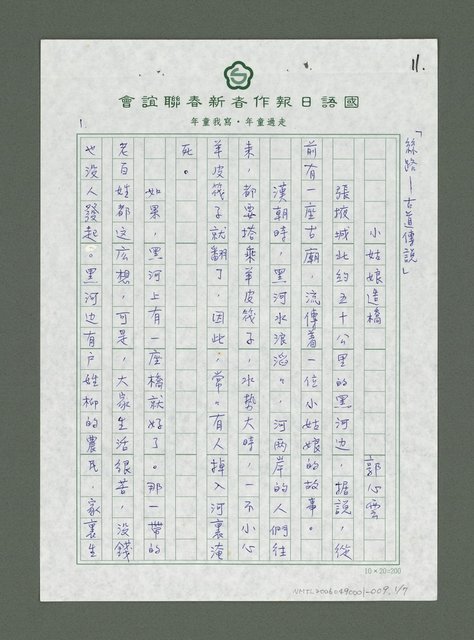 11.
國語日報作者新春聯誼會
走過童年・寫我童年
1.
「絲路—古道傳說」
小姑娘造橋
郭心雲
張掖城北約五十公里的黑河边，据說，從
前有一座古廟，流傳着一位小姑娘的故事。
漢朝時，黑河水浪滔々，河兩岸的人們往
來，都要搭乘羊皮筏子，水勢大時，一不小心
羊皮筏子就翻了，因此，常々有人掉入河裏淹
死。
如果，黑河上有一座橋就好了。那一帶的
老百姓都这広想，可是，大家生活很苦，没錢
也没人發起。黑河边有戶姓柳的農民，家裏生
10×20=200
NMTL20060490001-009. 1/7